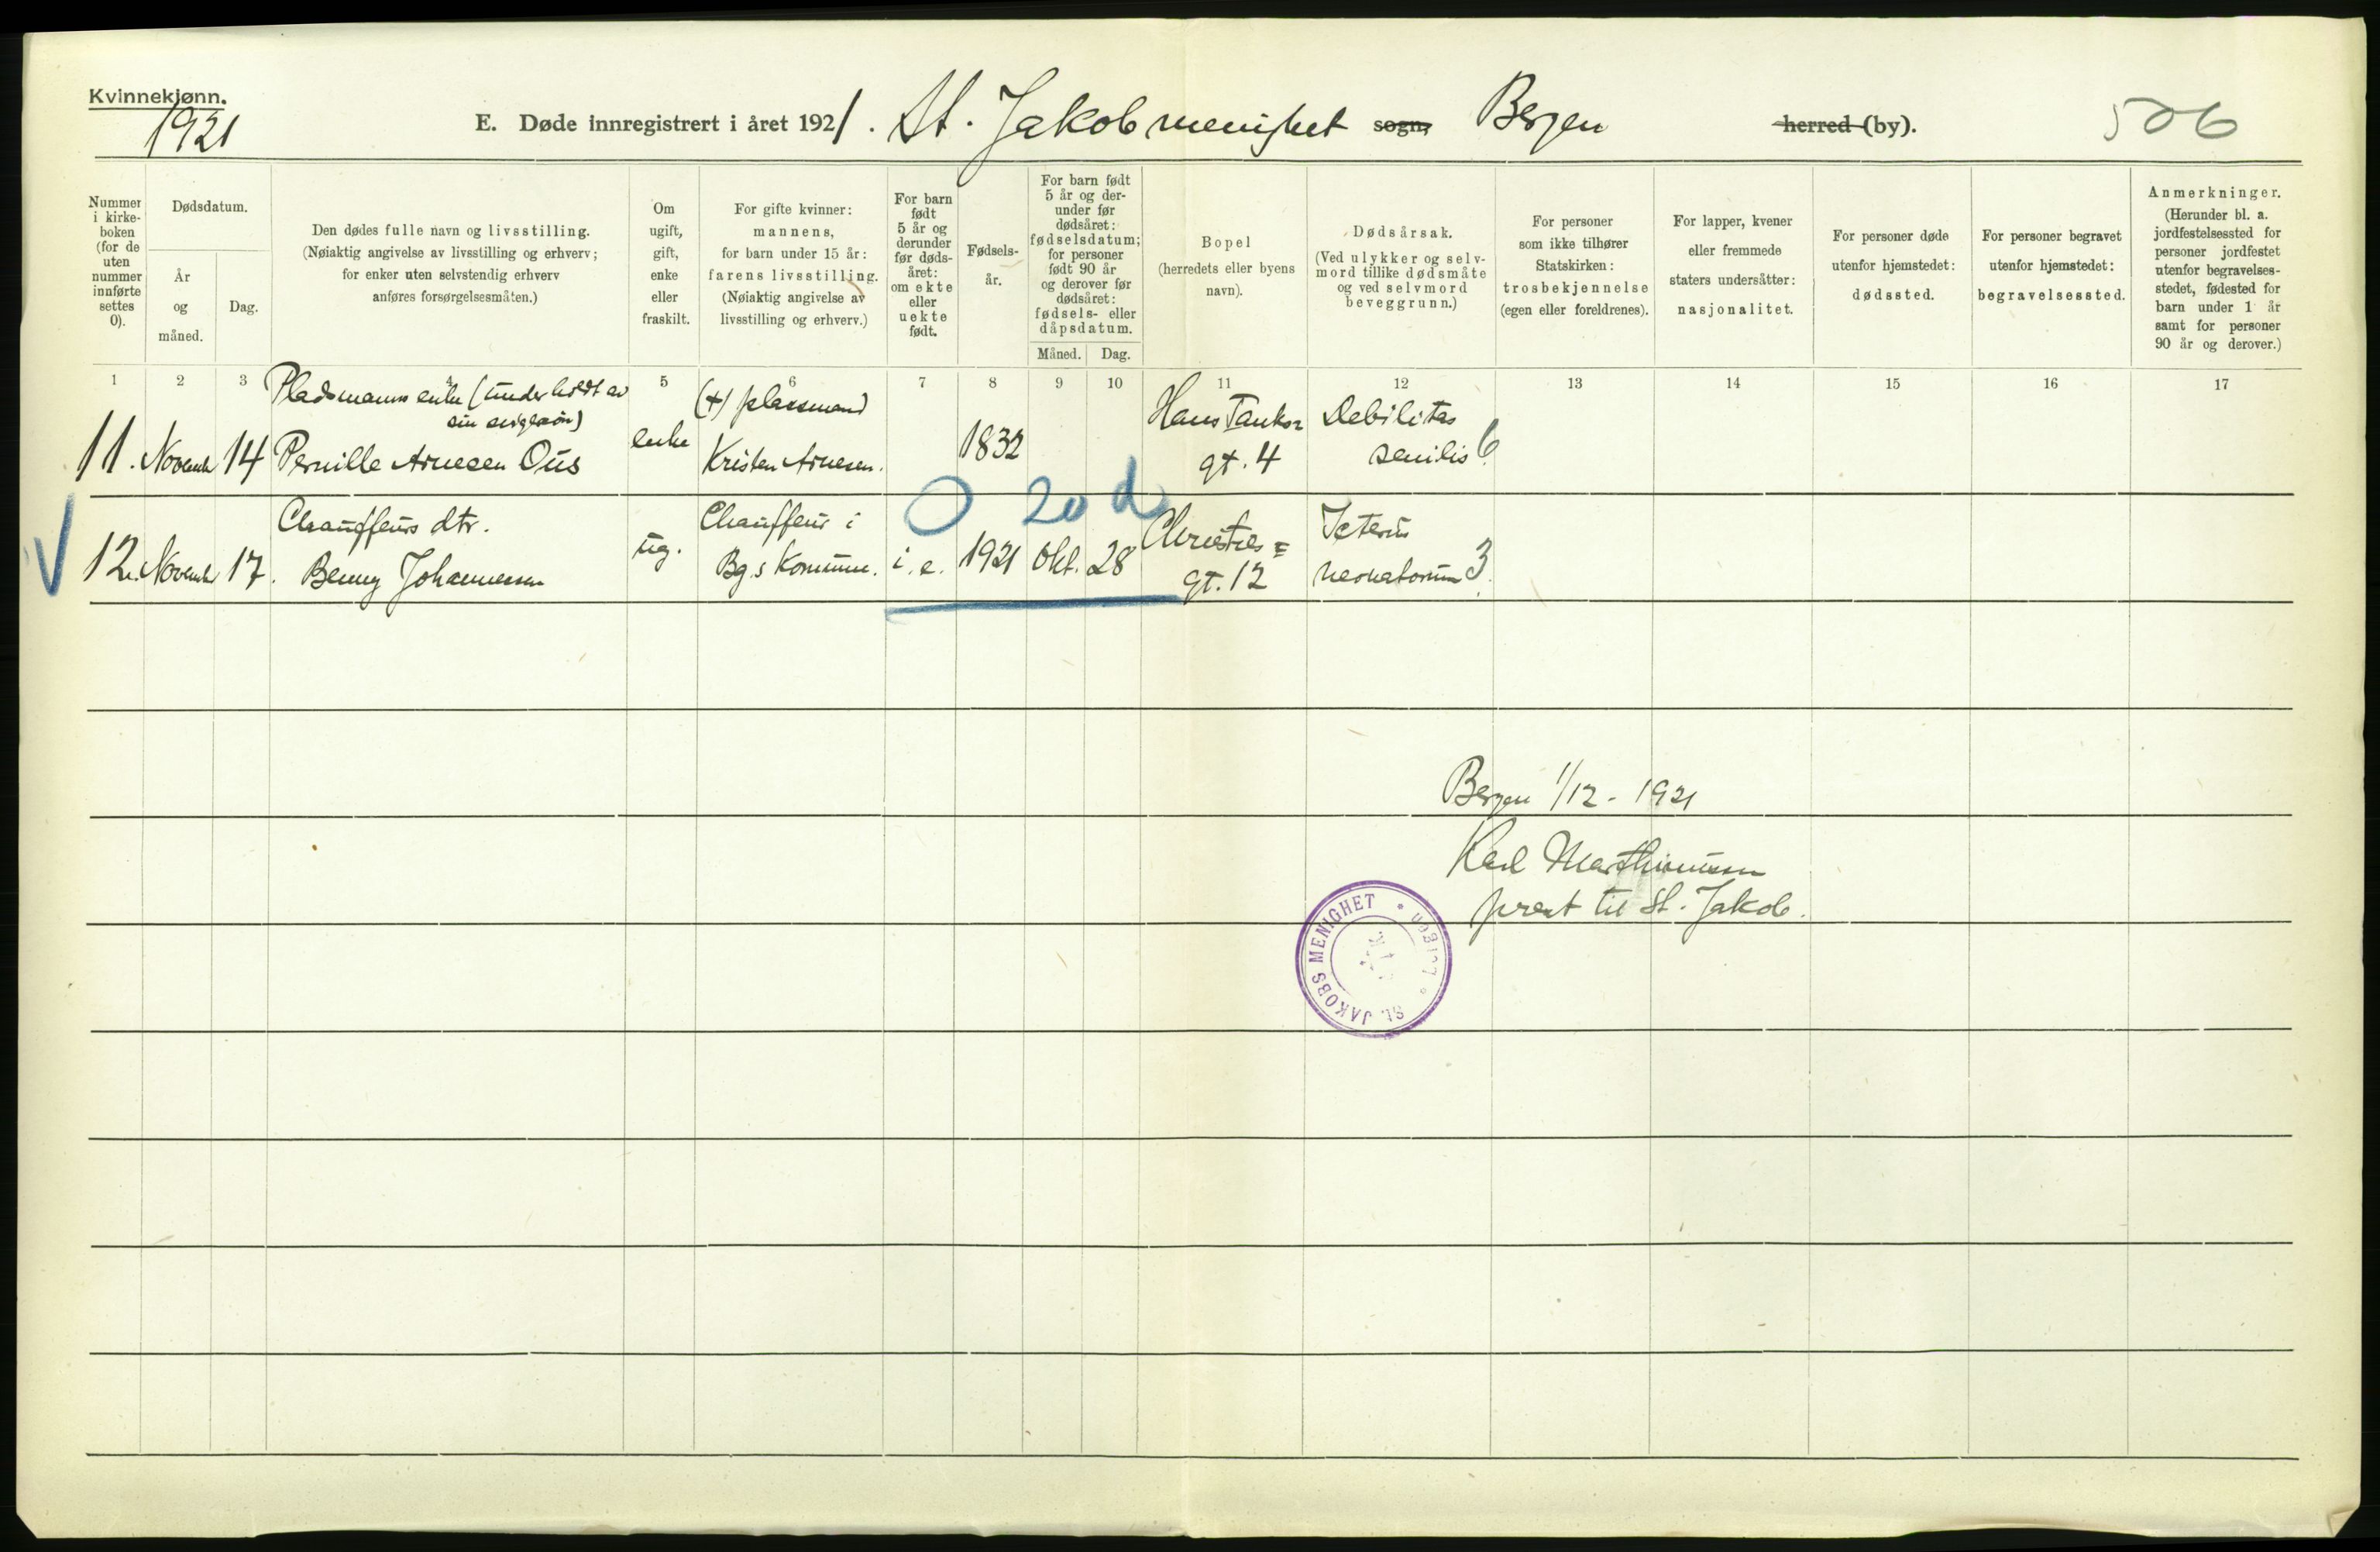 Kvinnekjønn.
1921
E. Døde innregistrert i året 1921. St. Jakob menighet sogn, Bergen herred (by).
506
Nummer i kirkeboken (for de uten nummer innførte settes 0).
Dødsdatum.
År og måned.
Dag.
Den dødes fulle navn og livsstilling.
(Nøiaktig angivelse av livsstilling og erhverv;
for enker uten selvstendig erhverv
anføres forsørgelsesmåten.)
Om ugift, gift, enke eller fraskilt.
For gifte kvinner:
mannens,
for barn under 15 år:
farens livsstilling.
(Nøiaktig angivelse av
livsstilling og erhverv.)
For barn født 5 år og derunder før dødsåret: om ekte eller uekte født.
Fødselsår.
For barn født 5 år og derunder før dødsåret: fødselsdatum; for personer født 90 år og derover før dødsåret: fødsels- eller dåpsdatum.
Måned.
Dag.
Bopel
(herredets eller byens
navn).
Dødsårsak.
(Ved ulykker og selvmord tillike dødsmåte og ved selvmord beveggrunn.)
For personer
som ikke tilhører
Statskirken:
trosbekjennelse
(egen eller foreldrenes).
For lapper, kvener
eller fremmede
staters undersåtter:
nasjonalitet.
For personer døde
utenfor hjemstedet:
dødssted.
For personer begravet
utenfor hjemstedet:
begravelsessted.
Anmerkninger.
(Herunder bl. a.
jordfestelsessted for
personer jordfestet
utenfor begravelses-
stedet, fødested for
barn under 1 år
samt for personer
90 år og derover.)
1 2 3 4 5 6 7 8 9 10 11 12 13 14 15 16 17
Pladsmanns enke (underholdt av
sin svigersøn)
11. Novemb 14 Pernille Arnesen Øus
enke
(+) plassmand
Kristen Arnesen.
1832
Hans Tanks=
gt. 4
Debilitas
senilis 6.
0 20 d
Chauffeurs dtr.
12. Novemb 17. Benny Johannessen
ug.
Chauffeur i
Bg.s Komune.
i. e. 1921 Okt. 28
Christies=
gt. 12
Icterus
neonatorum 3.
Bergen 1/12 - 1921
Karl Marthinussen
prest til St. Jakob.
St. JAKOBS MENIGHET